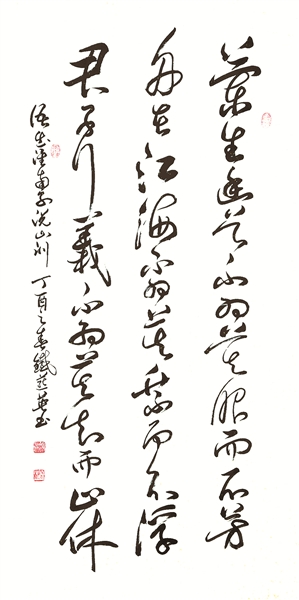 蘭生幽谷不為莫服而不芳
舟在江海不為莫乘而不浮
君子行義不為莫知而止休
語出淮南子說山訓 丁酉之春 英書